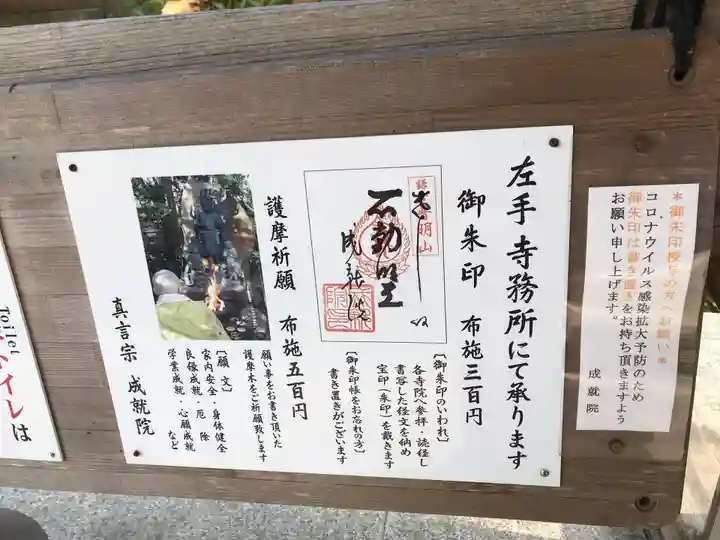 ＊御朱印授与の方へお願い＊
コロナウイルス感染拡大予防のため
御朱印は書き置きをお持ち頂きますよう
お願い申し上げます。
成就院
左手 寺務所にて承ります
御朱印 布施三百円
〔御朱印のいわれ〕
各寺院へ参拝・読経し
書写した経文を納め
宝印（朱印）を戴きます
〔御朱印帳をお忘れの方〕
書き置きがございます
護摩祈願 布施五百円
願い事をお書き頂いた
護摩木をご祈願致します
〔願 文〕
家内安全・身体健全
良縁成就・厄 除
学業成就・心願成就 など
真言宗 成就院
Toilet
トイレは